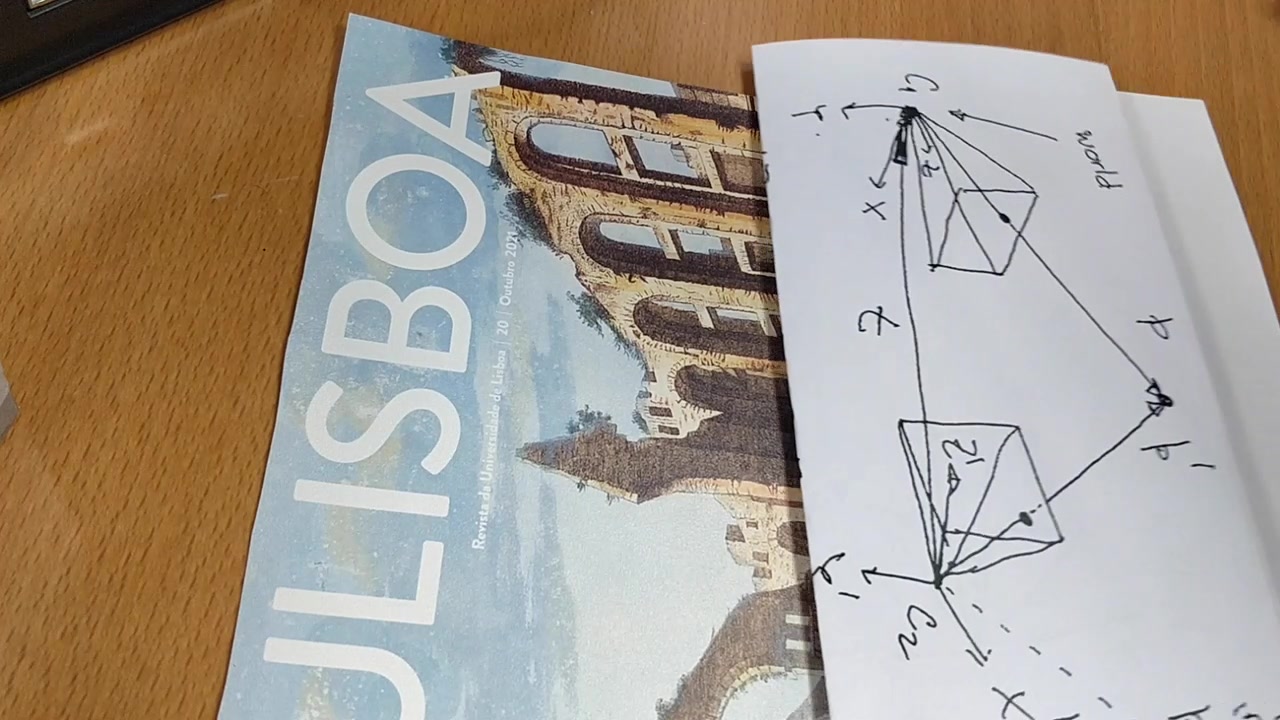 ULISBOA
Revista da Universidade de Lisboa | 20 | Outubro 2021
C1
world
Y
z
X
t
p
p'
z'
Y'
C2
X